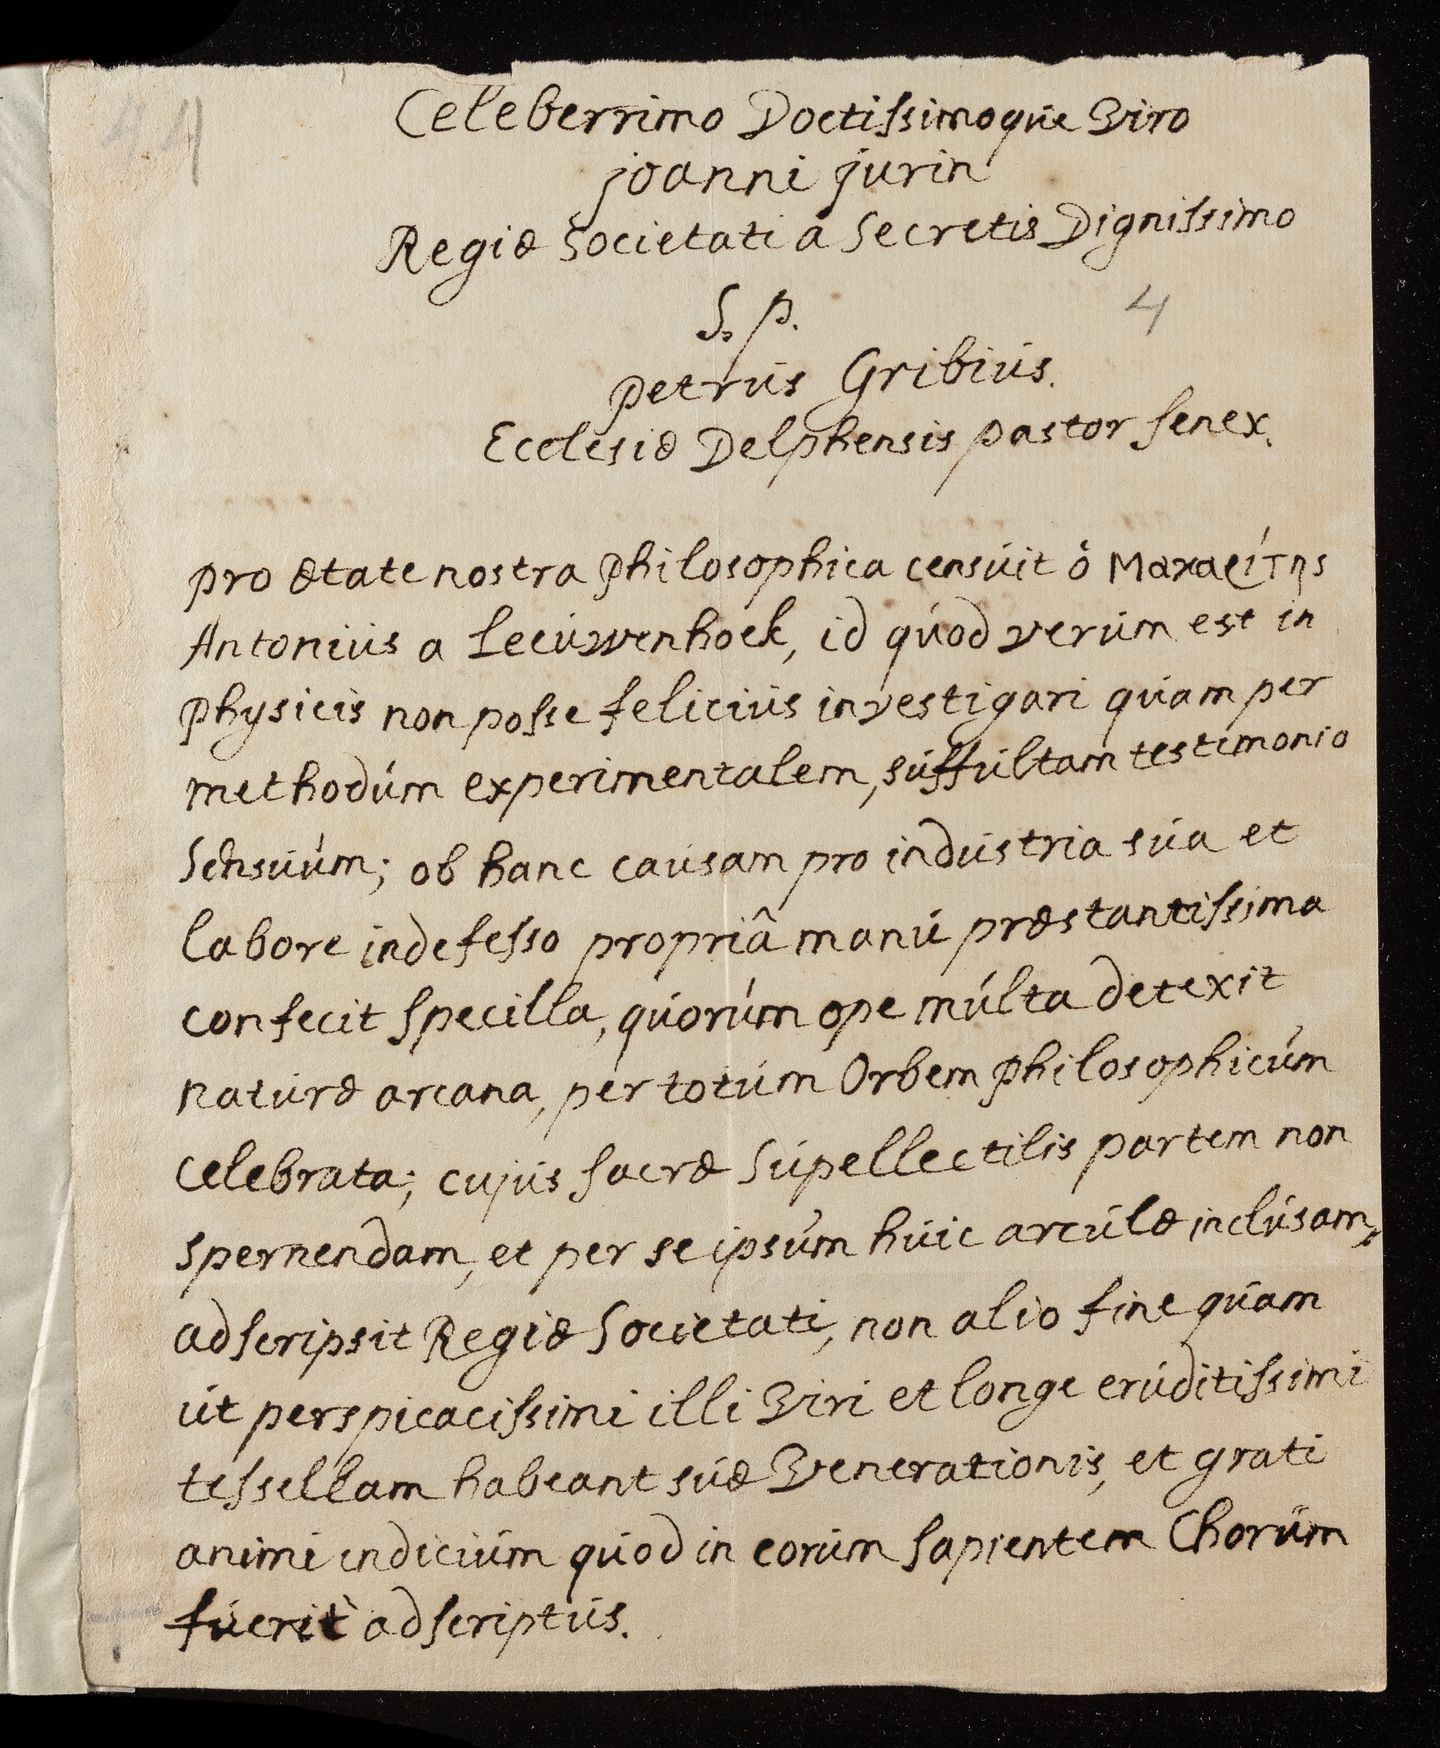 44
Celeberrimo Doctissimoque Viro
joanni jurin
Regiæ Societati a Secretis Dignissimo
S. p.
4
petrus Gribius.
Ecclesiæ Delphensis pastor senex.
pro ætate nostra philosophica censuit ὁ Μακαρίτης
Antonius a Leeuwenhoek, id quod verum est in
physicis non posse felicius investigari quam per
methodum experimentalem, suffultam testimonio
Sensuum; ob hanc causam pro industria sua et
labore indefesso propriâ manu præstantissima
confecit specilla, quorum ope multa detexit
naturæ arcana, per totum Orbem philosophicum
celebrata; cujus sacræ Supellectilis partem non
spernendam, et per se ipsum huic arculæ inclusam,
adscripsit Regiæ Societati, non alio fine quam
ut perspicacissimi illi Viri et longe eruditissimi
tessellam habeant suæ Venerationis, et grati
animi indicium quod in eorum sapientem Chorum
fuerit adscriptus.